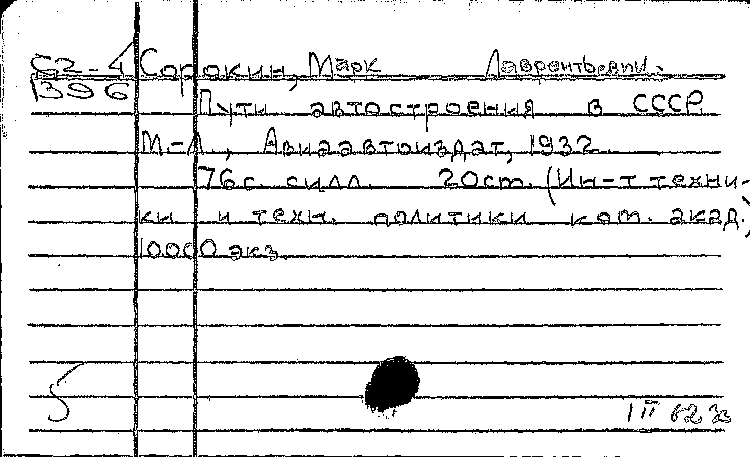 С2-4 Сорокин, Марк Лаврентьевич.
1396
Пути автостроения в СССР
М.-Л., Авиаавтоиздат, 1932.
76 с. силл. 20 ст. (Ин-т техни-
ки и техн. политики ком. акад.)
10000 экз.
5
1 III 62